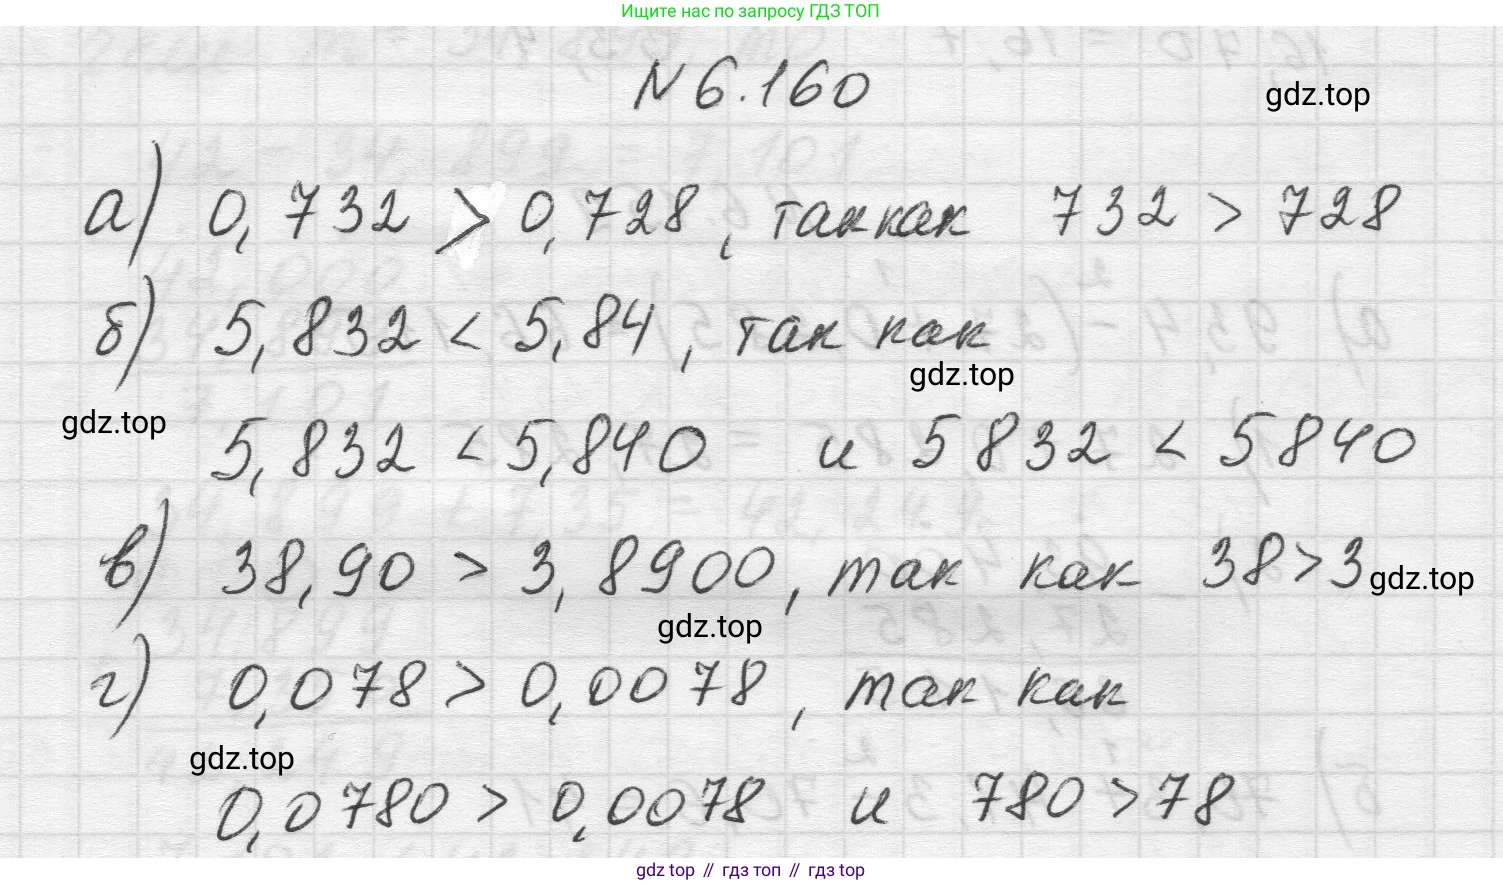 Ищите нас по запросу ГДЗ ТОП
N 6.160
gdz.top
а) 0,732 > 0,728, так как 732 > 728
б) 5,832 < 5,84, так как
gdz.top
gdz.top
5,832 < 5,840 и 5832 < 5840
в) 38,90 > 3,8900, так как 38 > 3
gdz.top
gdz.top
г) 0,078 > 0,0078, так как
gdz.top
0,0780 > 0,0078 и 780 > 78
gdz top // гдз топ // гдз top